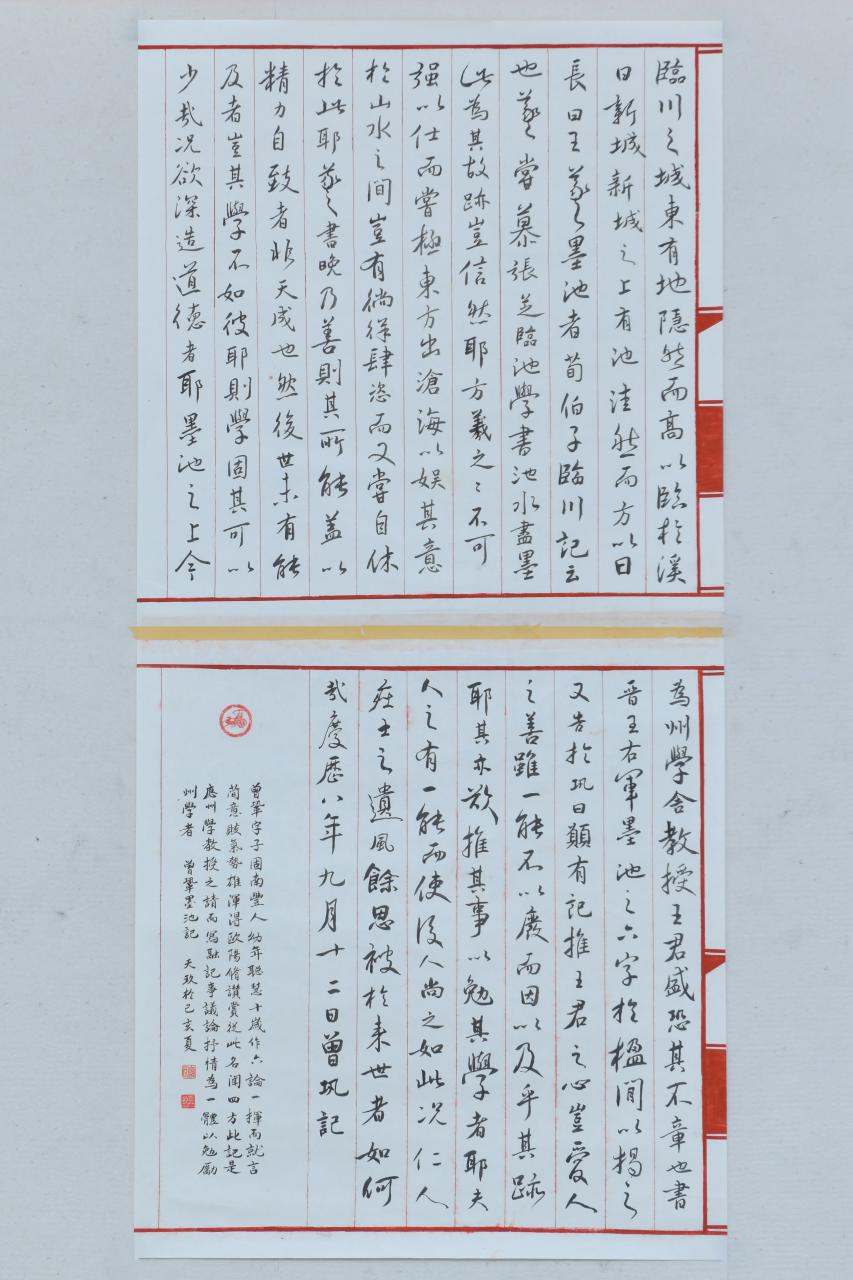 臨川之城東有地隱然而高以臨於溪
曰新城新城之上有池洼然而方以曰
長曰王羲之墨池者荀伯子臨川記云
也羲之嘗慕張芝臨池學書池水盡墨
此為其故跡豈信然耶方羲之之不可
强以仕而嘗極東方出滄海以娱其意
於山水之間豈有徜徉肆恣而又嘗自休
於此耶羲之書晚乃善則其所能蓋以
精力自致者非天成也然後世未有能
及者豈其學不如彼耶則學固其可以
少哉况欲深造道德者耶墨池之上今
為州學舍教授王君盛恐其不章也書
晋王右軍墨池之六字於楹間以揭之
又告於巩曰願有記推王君之心豈愛人
之善雖一能不以廢而因以及乎其跡
耶其亦欲推其事以勉其學者耶夫
人之有一能而使後人尚之如此况仁人
莊士之遺風餘思被於来世者如何
哉慶歷八年九月十二日曾巩記
曾鞏字子固南豐人幼年聪慧十歲作六論一揮而就言
简意賅氣勢雄渾得歐陽脩讃賞從此名闻四方此記是
應州學教授之請而寫融記事議論抒情為一體以勉勵
州學者 曾鞏墨池記 天玖於己亥夏